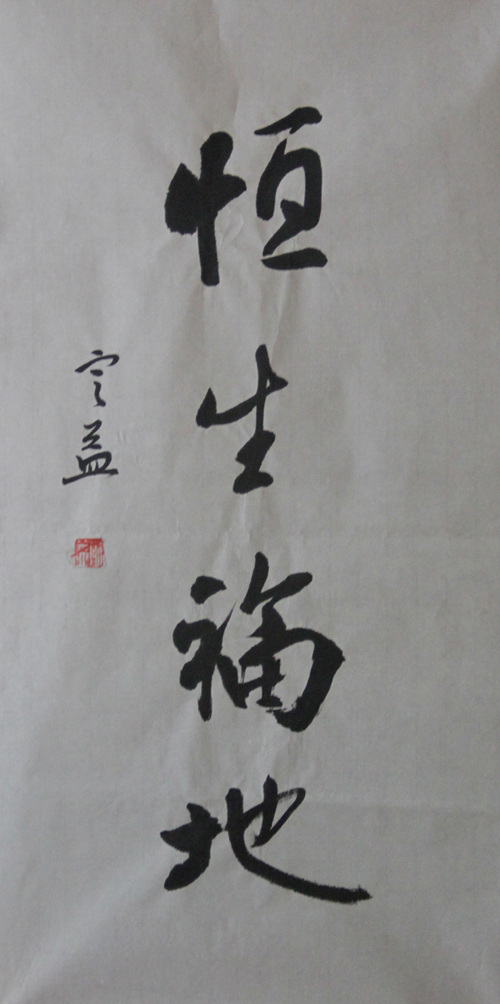 恒生福地
益